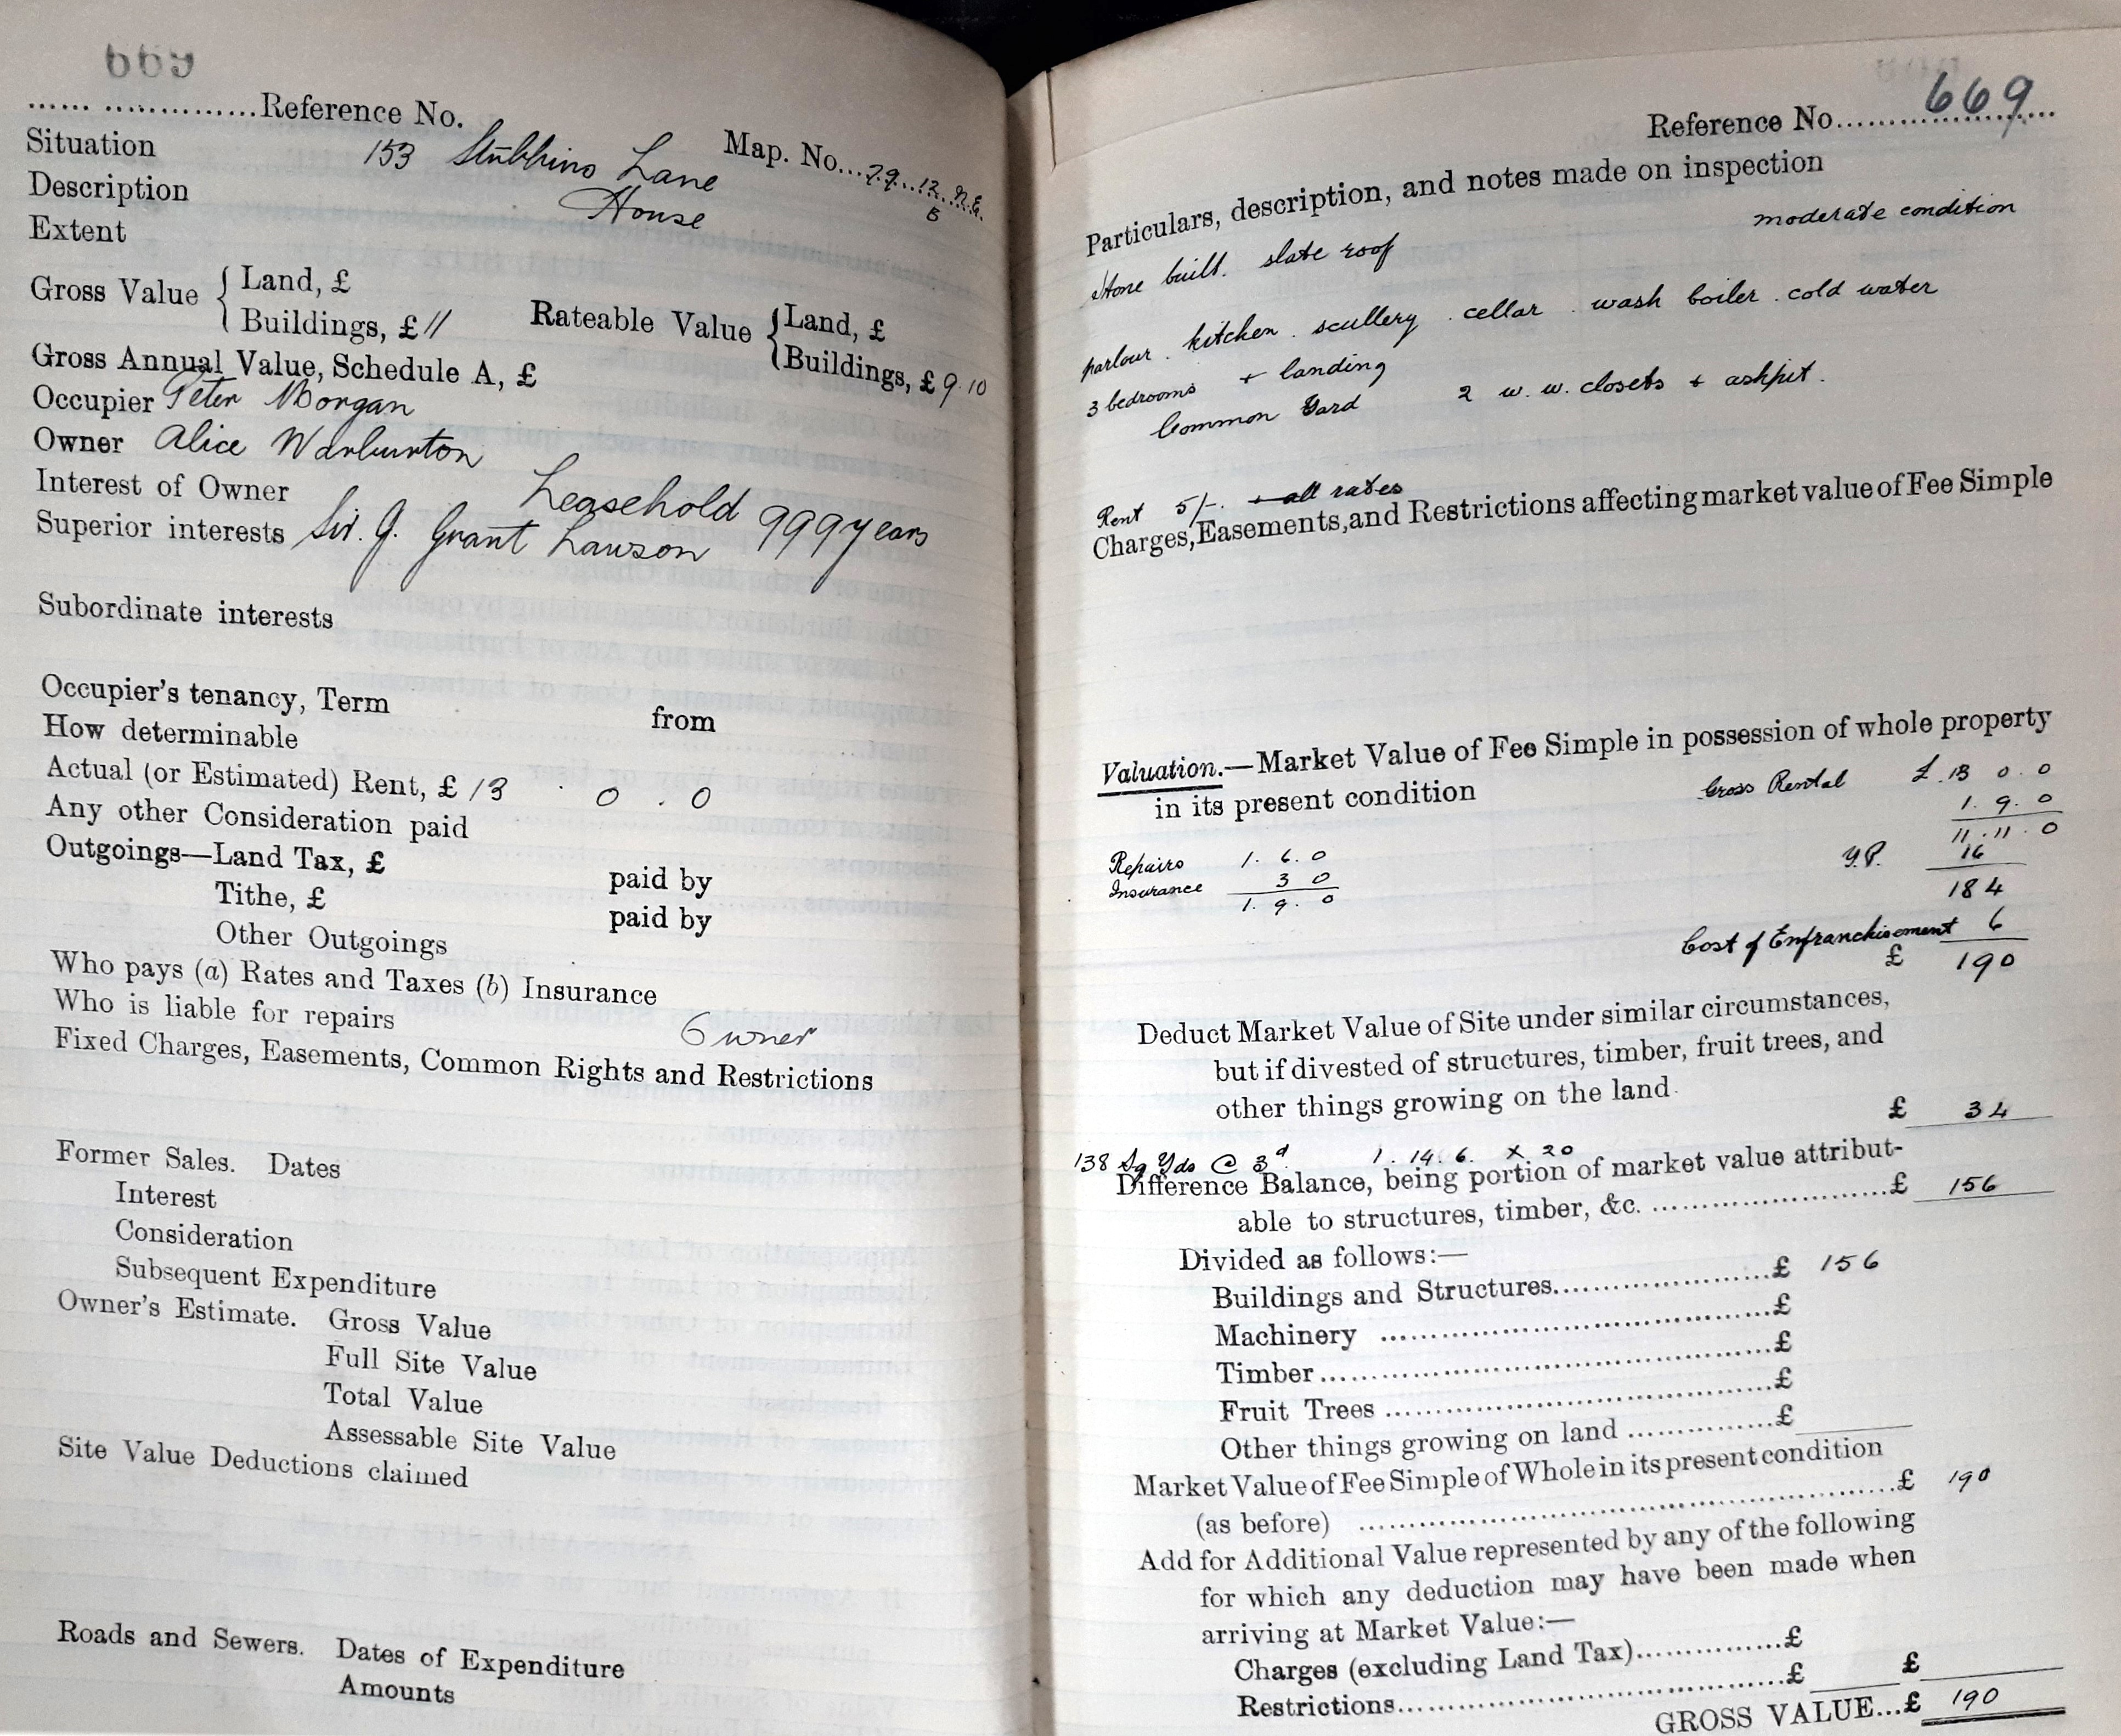 669
...... ..............Reference No.
Map. No...79..12. N.E.
B
Situation 153 Stubbins Lane
Description House
Extent
Gross Value { Land, £
Buildings, £ 11
Rateable Value { Land, £
Buildings, £ 9.10
Gross Annual Value, Schedule A, £
Occupier Peter Morgan
Owner Alice Warburton
Interest of Owner Leasehold 999 years
Superior interests Sir. J. Grant Lawson
Subordinate interests
Occupier's tenancy, Term from
How determinable
Actual (or Estimated) Rent, £ 13 . 0 . 0
Any other Consideration paid
Outgoings—Land Tax, £ paid by
Tithe, £ paid by
Other Outgoings
Who pays (a) Rates and Taxes (b) Insurance
Who is liable for repairs Owner
Fixed Charges, Easements, Common Rights and Restrictions
Former Sales. Dates
Interest
Consideration
Subsequent Expenditure
Owner's Estimate. Gross Value
Full Site Value
Total Value
Assessable Site Value
Site Value Deductions claimed
Roads and Sewers. Dates of Expenditure
Amounts
Reference No. 669
Particulars, description, and notes made on inspection
moderate condition
Stone built. slate roof
parlour . kitchen . scullery . cellar . wash boiler . cold water
3 bedrooms + landing
Common Yard 2 w. w. closets + ashpit.
Rent 5/-. + all rates
Charges, Easements, and Restrictions affecting market value of Fee Simple
Valuation.—Market Value of Fee Simple in possession of whole property
in its present condition
Gross Rental £ 13 0 . 0
1 . 9 . 0
11 . 11 . 0
Repairs 1 . 6 . 0
Insurance 3 0
1 . 9 . 0
Y.P. 16
184
Cost of Enfranchisement 6
£ 190
Deduct Market Value of Site under similar circumstances,
but if divested of structures, timber, fruit trees, and
other things growing on the land
£ 34
138 Sq Yds @ 3d 1 . 14 . 6 . x 20
Difference Balance, being portion of market value attribut-
able to structures, timber, &c. ..............................£ 156
Divided as follows:—
Buildings and Structures........................£ 156
Machinery ..........................................£
Timber................................................£
Fruit Trees ..........................................£
Other things growing on land .................£
Market Value of Fee Simple of Whole in its present condition
(as before) ..........................................................£ 190
Add for Additional Value represented by any of the following
for which any deduction may have been made when
arriving at Market Value:—
Charges (excluding Land Tax)...............£
Restrictions..........................................£ £
GROSS VALUE...£ 190